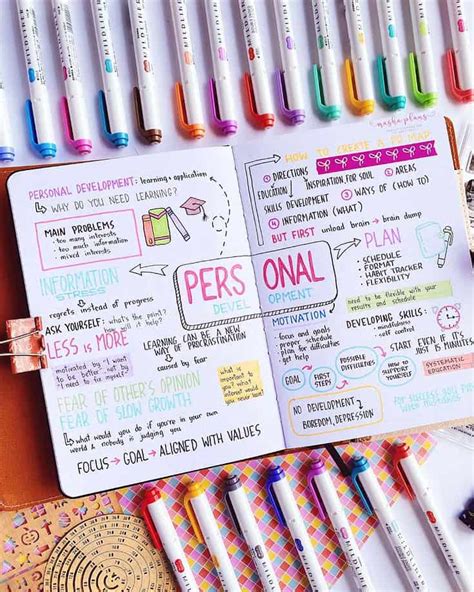 PERSONAL DEVELOPMENT: learning + application
WHY DO YOU NEED LEARNING?
MAIN PROBLEMS
• too many interests
• too much information
• mixed interests
INFORMATION
STRESS
regrets instead of progress
ASK YOURSELF: what's the point?
will this help?
LESS is MORE
motivated by "I want
to be better, not by
I need to fix myself"
LEARNING CAN BE A NEW
WAY OF PROCRASTINATION
caused by fear
what is
important to
you? what
interest would
you never leave?
FEAR OF OTHER'S OPINION
FEAR OF SLOW GROWTH
what would you do if you're in your own
world & nobody is judging you
FOCUS → GOAL → ALIGNED WITH VALUES
PERSONAL
DEVELOPMENT
masha plans
HOW TO CREATE A PD MAP
① DIRECTIONS
EDUCATION / INSPIRATION FOR SOUL
SKILLS DEVELOPMENT
② AREAS
③ WAYS OF (HOW TO)
④ INFORMATION (WHAT)
BUT FIRST unload brain → brain dump
PLAN
SCHEDULE
FORMAT
HABIT TRACKER
FLEXIBILITY
need to be flexible with your
results and schedule
MOTIVATION
• focus and goals
• proper schedule
• plan for difficulties
• get help
DEVELOPING SKILLS:
• mindfulness
• self control
START EVEN IF IT'S
JUST 5 MIN
GOAL
FIRST
STEPS
POSSIBLE
DIFFICULTIES
HOW TO
SUPPORT
YOURSELF
SYSTEMATIC
EDUCATION
NO DEVELOPMENT
BOREDOM, DEPRESSION
MILDLINER